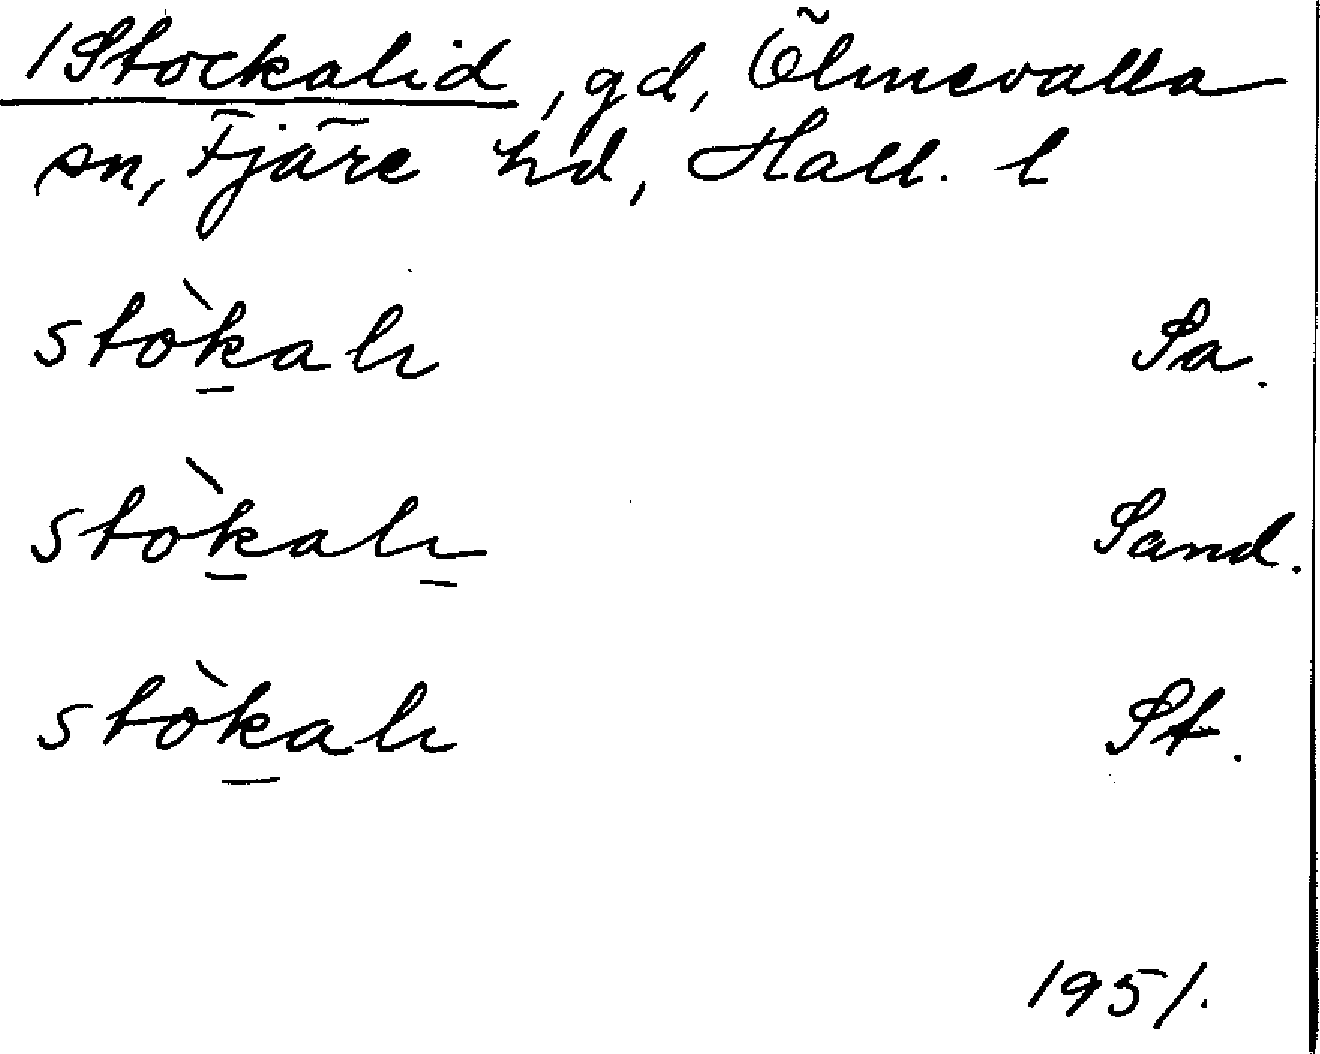 1 Stockalid, gd, Ölmevalla
sn, Fjäre hd, Hall. l
stòkalı Sa.
stòkalı Sand.
stòkalı St.
1951.